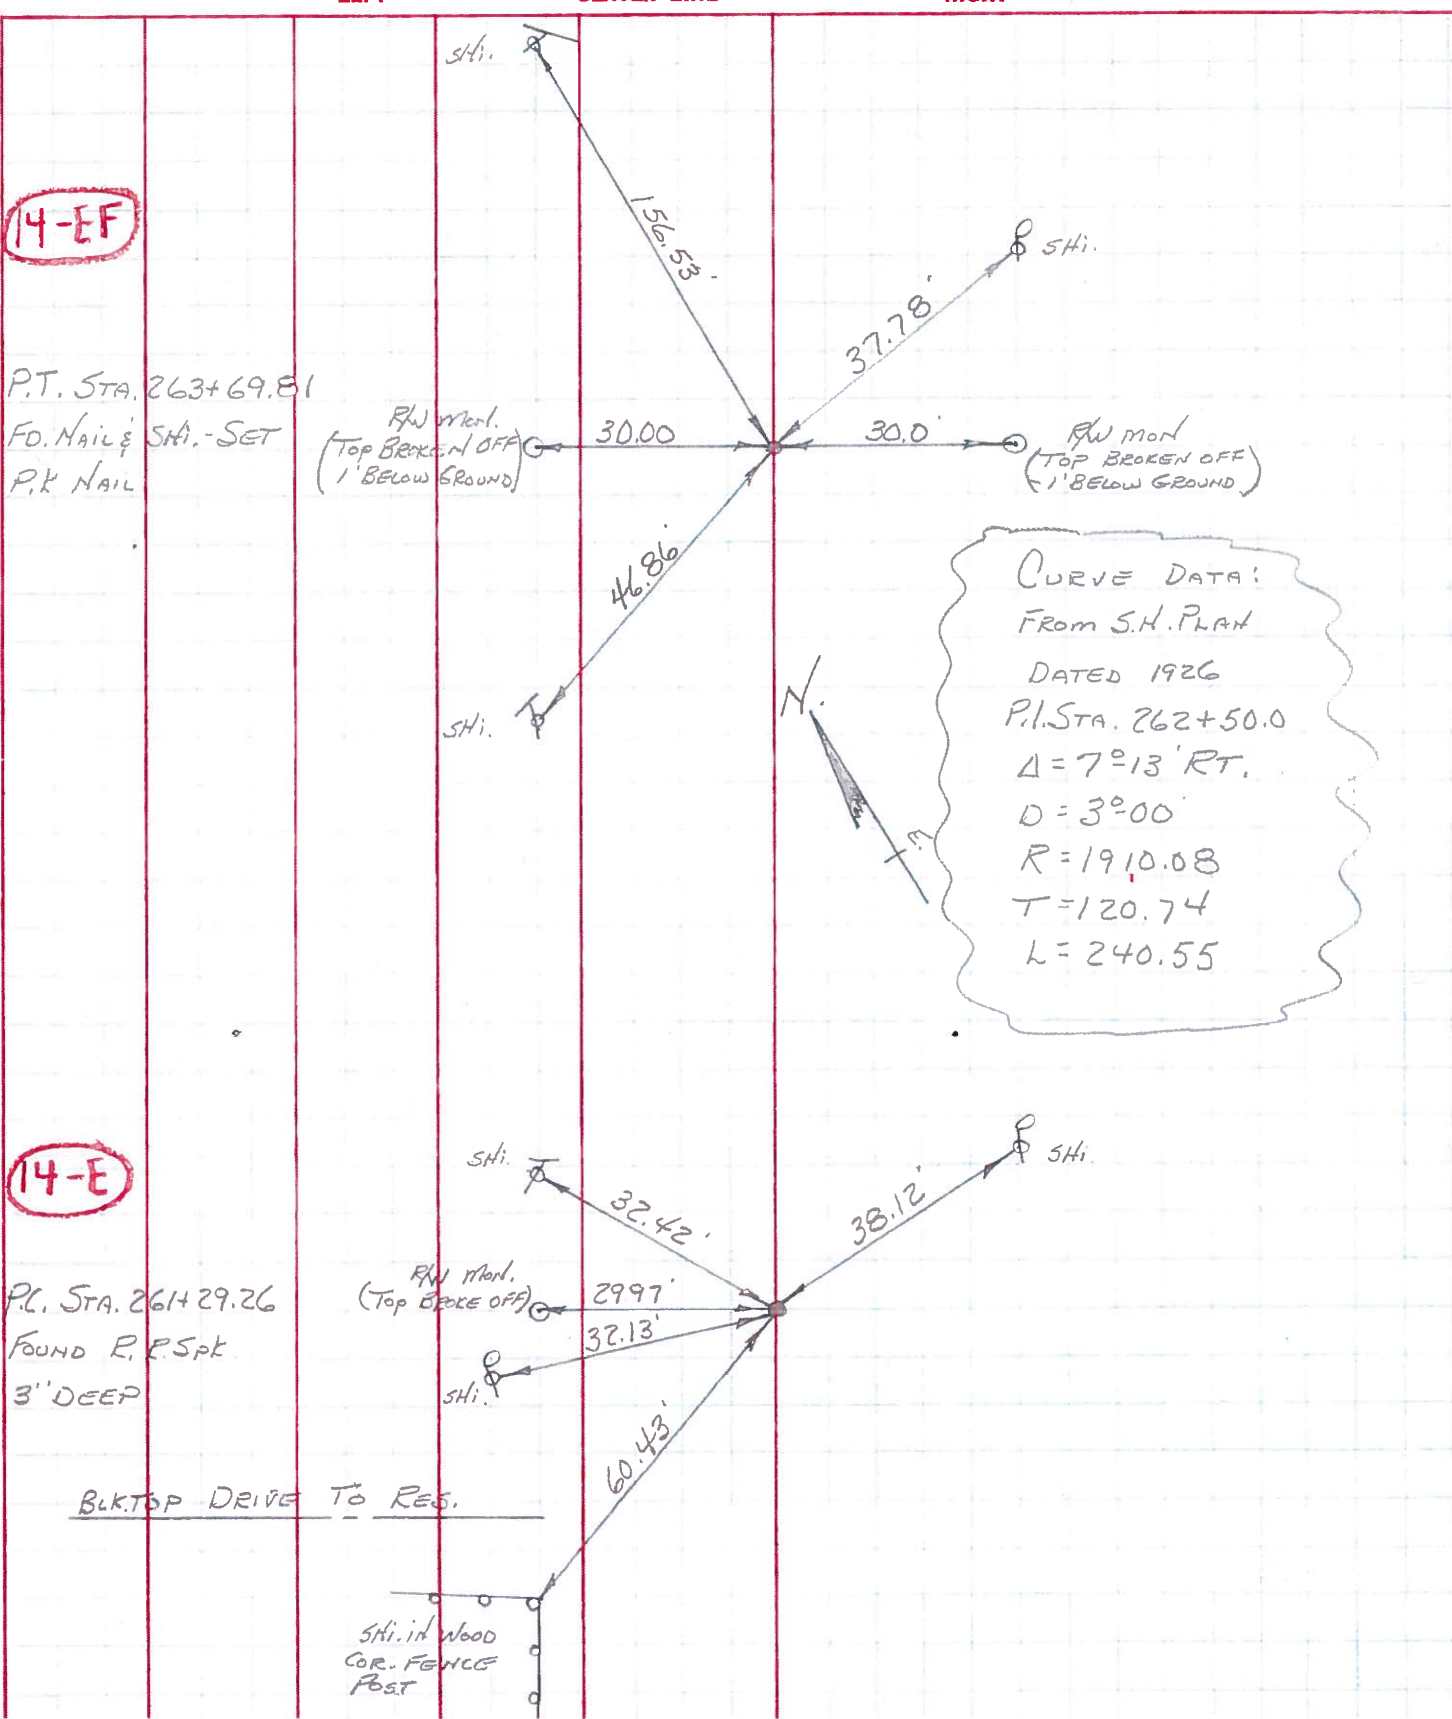 SHI.
14-EF
156.53'
SHI.
37.78'
P.T. STA. 263+69.81
FD. NAIL & SHI.-SET
P.K NAIL
R/W MON.
(TOP BROKEN OFF
1' BELOW GROUND)
30.00
30.0'
R/W MON
(TOP BROKEN OFF
-1' BELOW GROUND)
46.86'
SHI.
N.
CURVE DATA:
FROM S.H. PLAN
DATED 1926
P.I. STA. 262+50.0
Δ = 7°13' RT.
D = 3°00'
R = 1910.08
T = 120.74
L = 240.55
14-E
SHI.
32.42'
38.12'
SHI.
P.C. STA. 261+29.26
FOUND R.R. SPK
3" DEEP
R/W MON.
(TOP BROKE OFF)
29.97'
32.13'
SHI.
60.43'
BLK.TOP DRIVE TO RES.
SHI. IN WOOD
COR. FENCE
POST